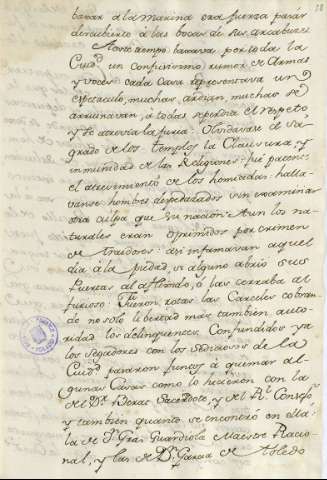 baxar à la Marina era fuerza pasar
descubierto à las bocas de sus arcabuces
A este tiempo vagava por toda la
Ciud un confusissimo rumor de Armas
y voces cada Casa representava un
espectaculo, muchas ardian, muchas se
arruinavan, à todas se perdia el respeto
y se atrevia la furia. Olvidavase el sa-
grado de los templos, la Clausura, y
inmunidad de las Religiones, fue patente
el atrevimiento de los homicidas: halla-
vanse hombres despedazados sin examinar
otra culpa que su nacion: Aun los na-
turales eran oprimidos por crimen
de traidores: asi infamavan aquel
dia à la piedad, si alguno abrio sus
Puertas al afligido, ò las cerraba al
furioso: Fueron rotas las Carceles cobran-
do no solo libertad mas tambien auto-
ridad los delinquentes. Confundidos ya
los segadores con los sediciosos de la
Ciud pararon juntos à quemar al-
gunas Casas como lo hicieron con la
del Dr Berax Sacerdote, y del Rl Consejo
y tambien quanto se encontró en ella:
la de Dn Grau Guardiola Maestre Racio-
nal, y las de Dn Garcia de Toledo